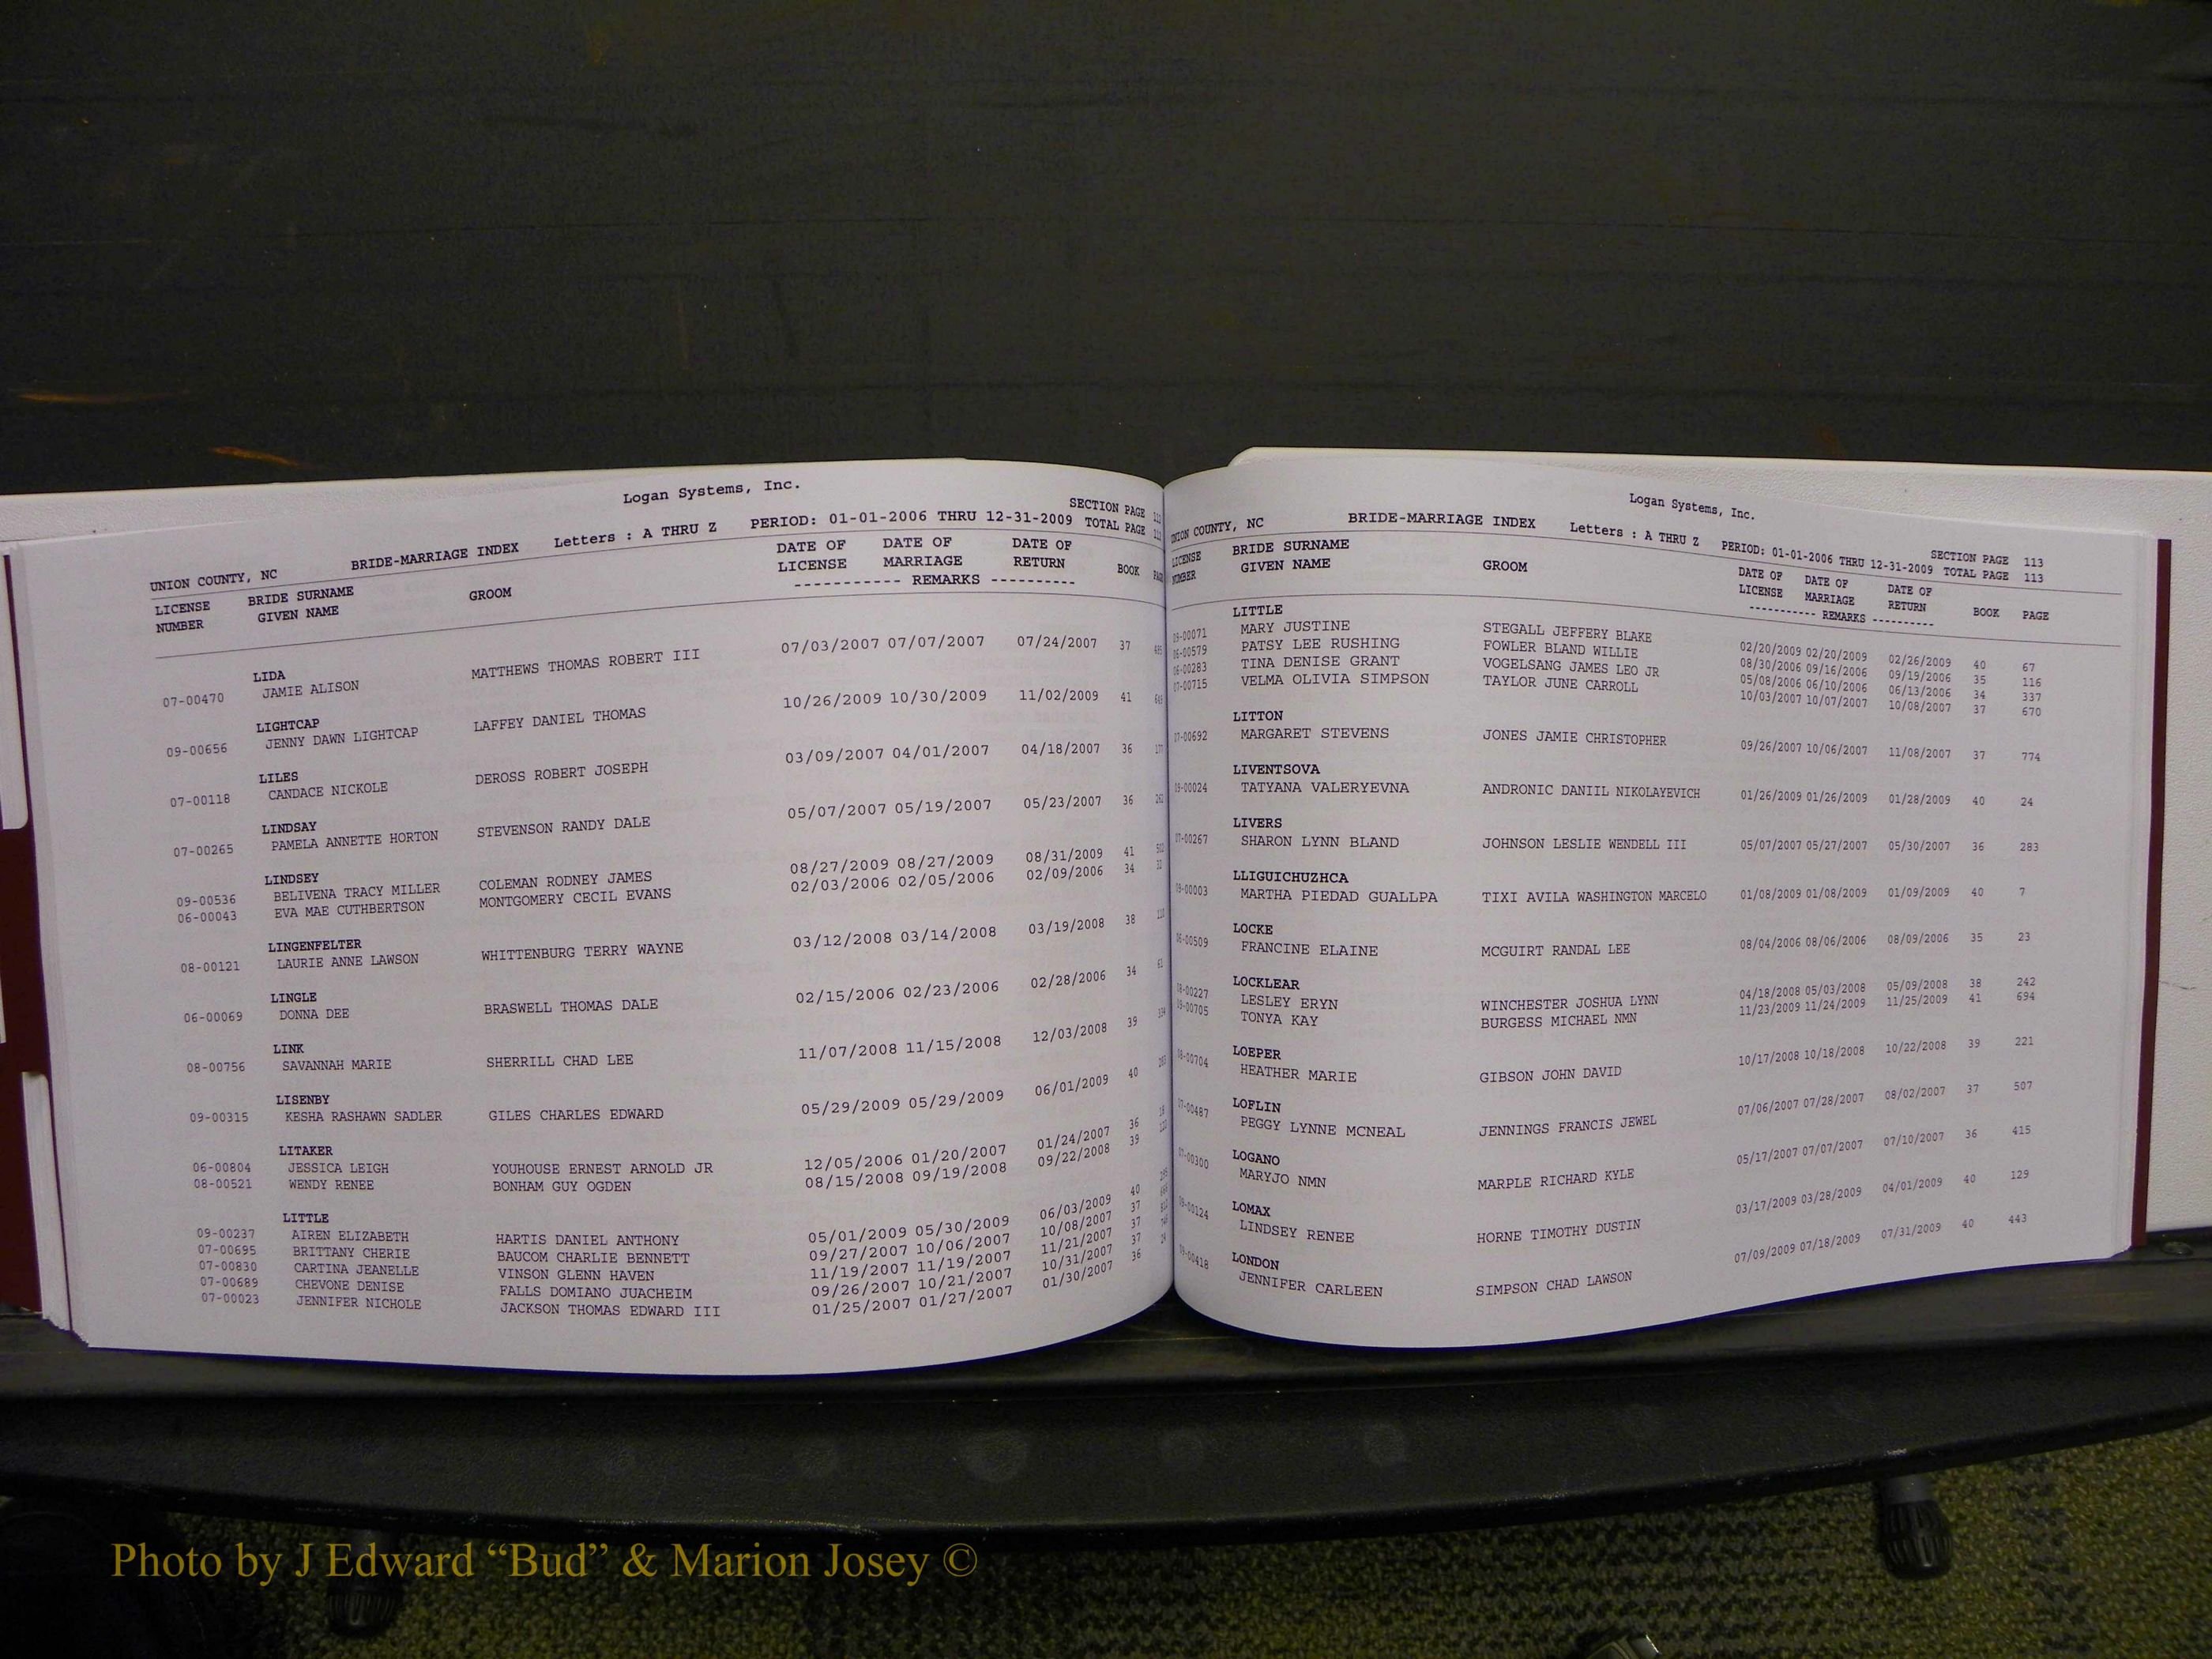 Logan Systems, Inc.
UNION COUNTY, NC BRIDE-MARRIAGE INDEX Letters : A THRU Z PERIOD: 01-01-2006 THRU 12-31-2009 SECTION PAGE
TOTAL PAGE
LICENSE BRIDE SURNAME GROOM DATE OF DATE OF DATE OF BOOK
NUMBER GIVEN NAME LICENSE MARRIAGE RETURN
----------- REMARKS ----------
LIDA
07-00470 JAMIE ALISON MATTHEWS THOMAS ROBERT III 07/03/2007 07/07/2007 07/24/2007 37
LIGHTCAP
09-00656 JENNY DAWN LIGHTCAP LAFFEY DANIEL THOMAS 10/26/2009 10/30/2009 11/02/2009 41
LILES
07-00118 CANDACE NICKOLE DEROSS ROBERT JOSEPH 03/09/2007 04/01/2007 04/18/2007 36
LINDSAY
07-00265 PAMELA ANNETTE HORTON STEVENSON RANDY DALE 05/07/2007 05/19/2007 05/23/2007 36
LINDSEY
09-00536 BELIVENA TRACY MILLER COLEMAN RODNEY JAMES 08/27/2009 08/27/2009 08/31/2009 41
06-00043 EVA MAE CUTHBERTSON MONTGOMERY CECIL EVANS 02/03/2006 02/05/2006 02/09/2006 34
LINGENFELTER
08-00121 LAURIE ANNE LAWSON WHITTENBURG TERRY WAYNE 03/12/2008 03/14/2008 03/19/2008 38
LINGLE
06-00069 DONNA DEE BRASWELL THOMAS DALE 02/15/2006 02/23/2006 02/28/2006 34
LINK
08-00756 SAVANNAH MARIE SHERRILL CHAD LEE 11/07/2008 11/15/2008 12/03/2008 39
LISENBY
09-00315 KESHA RASHAWN SADLER GILES CHARLES EDWARD 05/29/2009 05/29/2009 06/01/2009 40
LITAKER
06-00804 JESSICA LEIGH YOUHOUSE ERNEST ARNOLD JR 12/05/2006 01/20/2007 01/24/2007 36
08-00521 WENDY RENEE BONHAM GUY OGDEN 08/15/2008 09/19/2008 09/22/2008 39
LITTLE
09-00237 AIREN ELIZABETH HARTIS DANIEL ANTHONY 05/01/2009 05/30/2009 06/03/2009 40
07-00695 BRITTANY CHERIE BAUCOM CHARLIE BENNETT 09/27/2007 10/06/2007 10/08/2007 37
07-00830 CARTINA JEANELLE VINSON GLENN HAVEN 11/19/2007 11/19/2007 11/21/2007 37
07-00689 CHEVONE DENISE FALLS DOMIANO JUACHEIM 09/26/2007 10/21/2007 10/31/2007 37
07-00023 JENNIFER NICHOLE JACKSON THOMAS EDWARD III 01/25/2007 01/27/2007 01/30/2007 36
Logan Systems, Inc.
UNION COUNTY, NC BRIDE-MARRIAGE INDEX Letters : A THRU Z PERIOD: 01-01-2006 THRU 12-31-2009 SECTION PAGE 113
TOTAL PAGE 113
LICENSE BRIDE SURNAME GROOM DATE OF DATE OF DATE OF BOOK PAGE
NUMBER GIVEN NAME LICENSE MARRIAGE RETURN
----------- REMARKS ----------
LITTLE
09-00071 MARY JUSTINE STEGALL JEFFERY BLAKE 02/20/2009 02/20/2009 02/26/2009 40 67
06-00579 PATSY LEE RUSHING FOWLER BLAND WILLIE 08/30/2006 09/16/2006 09/19/2006 35 116
06-00283 TINA DENISE GRANT VOGELSANG JAMES LEO JR 05/08/2006 06/10/2006 06/13/2006 34 337
07-00715 VELMA OLIVIA SIMPSON TAYLOR JUNE CARROLL 10/03/2007 10/07/2007 10/08/2007 37 670
LITTON
07-00692 MARGARET STEVENS JONES JAMIE CHRISTOPHER 09/26/2007 10/06/2007 11/08/2007 37 774
LIVENTSOVA
09-00024 TATYANA VALERYEVNA ANDRONIC DANIIL NIKOLAYEVICH 01/26/2009 01/26/2009 01/28/2009 40 24
LIVERS
07-00267 SHARON LYNN BLAND JOHNSON LESLIE WENDELL III 05/07/2007 05/27/2007 05/30/2007 36 283
LLIGUICHUZHCA
09-00003 MARTHA PIEDAD GUALLPA TIXI AVILA WASHINGTON MARCELO 01/08/2009 01/08/2009 01/09/2009 40 7
LOCKE
06-00509 FRANCINE ELAINE MCGUIRT RANDAL LEE 08/04/2006 08/06/2006 08/09/2006 35 23
LOCKLEAR
08-00227 LESLEY ERYN WINCHESTER JOSHUA LYNN 04/18/2008 05/03/2008 05/09/2008 38 242
09-00705 TONYA KAY BURGESS MICHAEL NMN 11/23/2009 11/24/2009 11/25/2009 41 694
LOEPER
08-00704 HEATHER MARIE GIBSON JOHN DAVID 10/17/2008 10/18/2008 10/22/2008 39 221
LOFLIN
07-00487 PEGGY LYNNE MCNEAL JENNINGS FRANCIS JEWEL 07/06/2007 07/28/2007 08/02/2007 37 507
LOGANO
07-00300 MARYJO NMN MARPLE RICHARD KYLE 05/17/2007 07/07/2007 07/10/2007 36 415
LOMAX
09-00124 LINDSEY RENEE HORNE TIMOTHY DUSTIN 03/17/2009 03/28/2009 04/01/2009 40 129
LONDON
09-00418 JENNIFER CARLEEN SIMPSON CHAD LAWSON 07/09/2009 07/18/2009 07/31/2009 40 443
Photo by J Edward “Bud” & Marion Josey ©